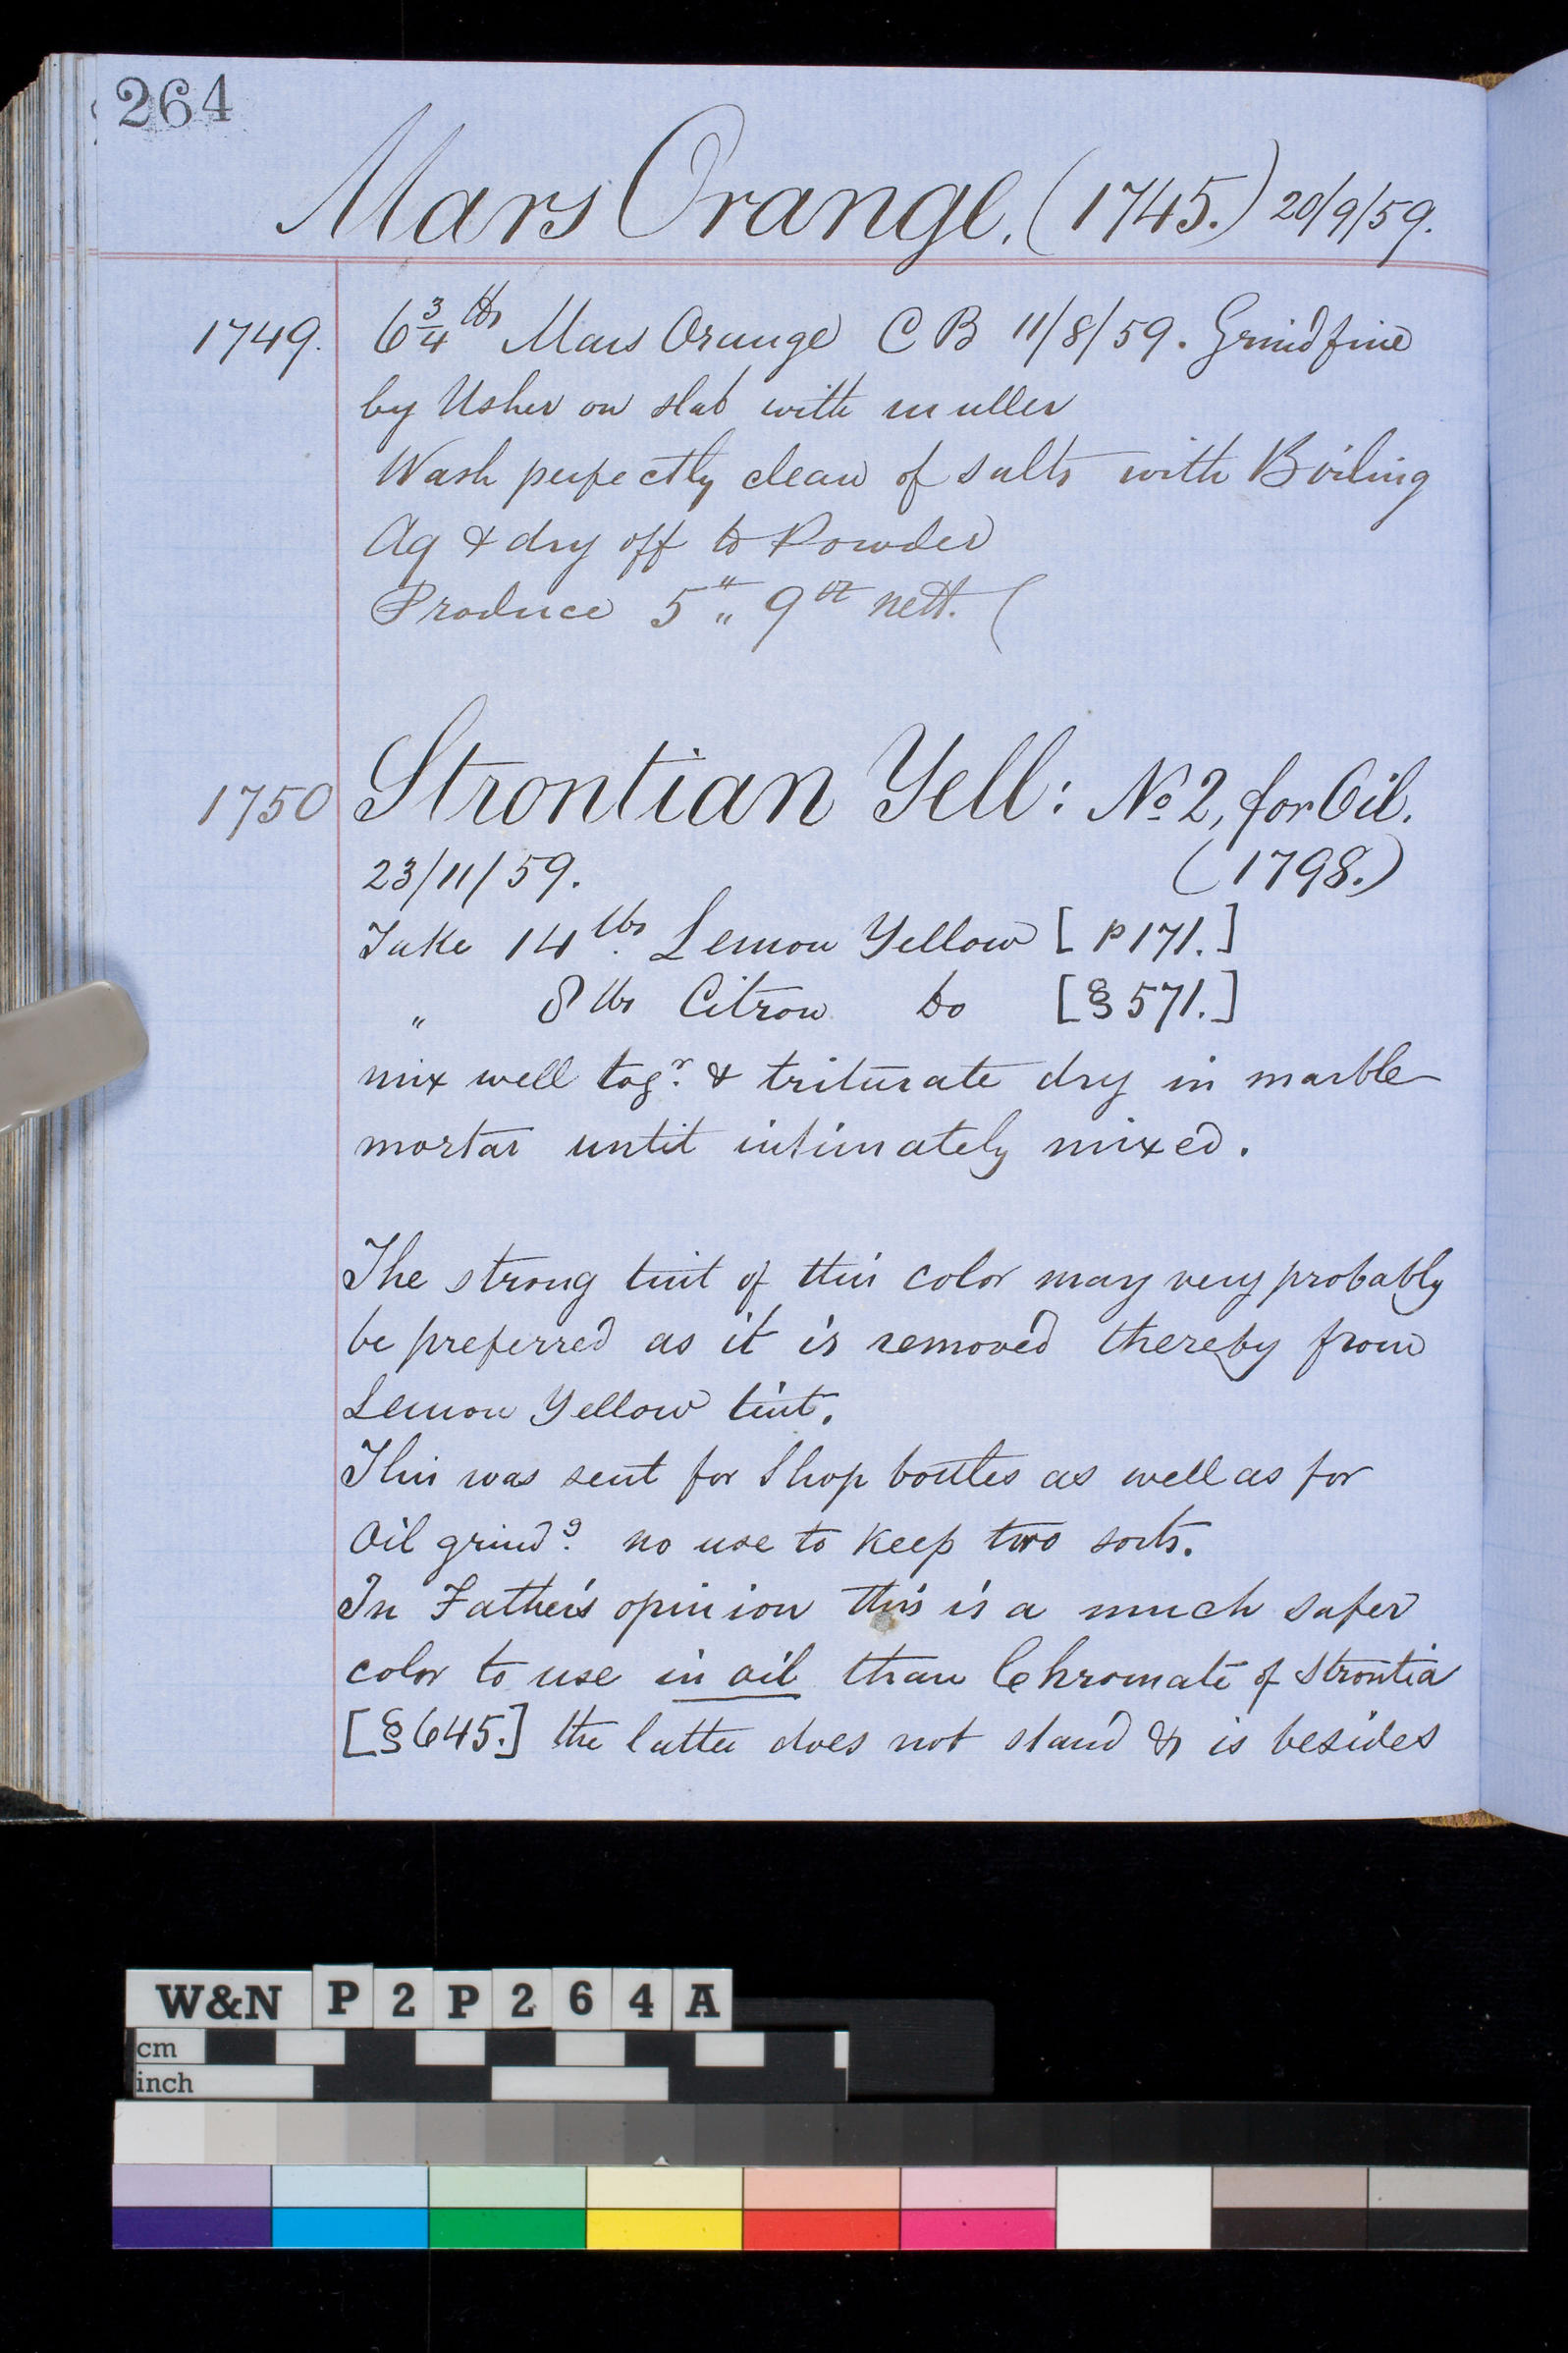 264
Mars Orange. (1745.) 20/9/59.
1749. 6 3/4 lbs Mars Orange C B 11/8/59. Grind fine
by Usher on slab with muller
Wash perfectly clean of salts with Boiling
Aq & dry off to Powder
Produce 5 lb „ 9 oz nett. (
1750 Strontian Yell: No 2, for Oil.
23/11/59. (1798.)
Take 14 lbs. Lemon Yellow [p 171.]
„ 8 lbs Citron Do [§ 571.]
mix well togr. & triturate dry in marble
mortar until intimately mixed.
The strong tint of this color may very probably
be preferred as it is removed thereby from
Lemon Yellow tint.
This was sent for Shop bottles as well as for
Oil grindg. no use to keep two sorts.
In Father's opinion this is a much safer
color to use in oil than Chromate of Strontia
[§ 645.] the latter does not stand & is besides
W&N P2P264A
cm
inch